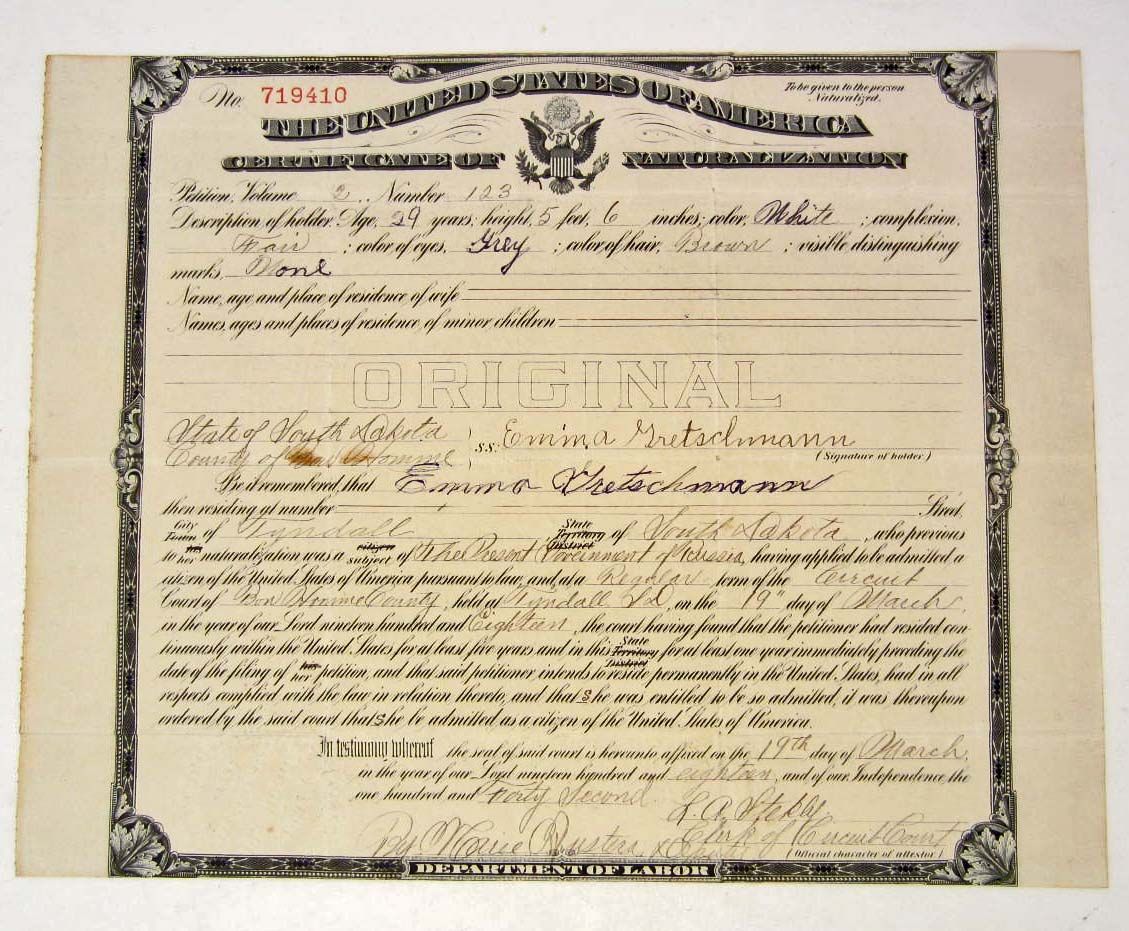 No. 719410
To be given to the person Naturalized.
THE UNITED STATES OF AMERICA
CERTIFICATE OF NATURALIZATION
Petition, Volume 2 Number 123
Description of holder: Age, 29 years; height, 5 feet, 6 inches; color, White; complexion,
Fair; color of eyes, Grey; color of hair, Brown; visible distinguishing
marks, None
Name, age and place of residence of wife
Names, ages and places of residence of minor children
ORIGINAL
State of South Dakota
County of Bon Homme
s.s. Emma Gretschmann
(Signature of holder)
Be it remembered, that Emma Gretschmann
then residing at number Street,
City Town of Tyndall State Territory District of South Dakota, who previous
to his her naturalization was a citizen subject of The Present Government of Russia, having applied to be admitted a
citizen of the United States of America pursuant to law, and, at a Regular term of the Circuit
Court of Bon Homme County, held at Tyndall S D, on the 19" day of March,
in the year of our Lord nineteen hundred and Eighteen, the court having found that the petitioner had resided con-
tinuously within the United States for at least five years and in this State Territory District for at least one year immediately preceding the
date of the filing of his her petition, and that said petitioner intends to reside permanently in the United States, had in all
respects complied with the law in relation thereto, and that she was entitled to be so admitted, it was thereupon
ordered by the said court that she be admitted as a citizen of the United States of America.
In testimony whereof the seal of said court is hereunto affixed on the 19th day of March,
in the year of our Lord nineteen hundred and eighteen, and of our Independence the
one hundred and Forty Second.
L. A. Stekly
Clerk of Circuit Court
By Marie
(Official character of attestor)
DEPARTMENT OF LABOR